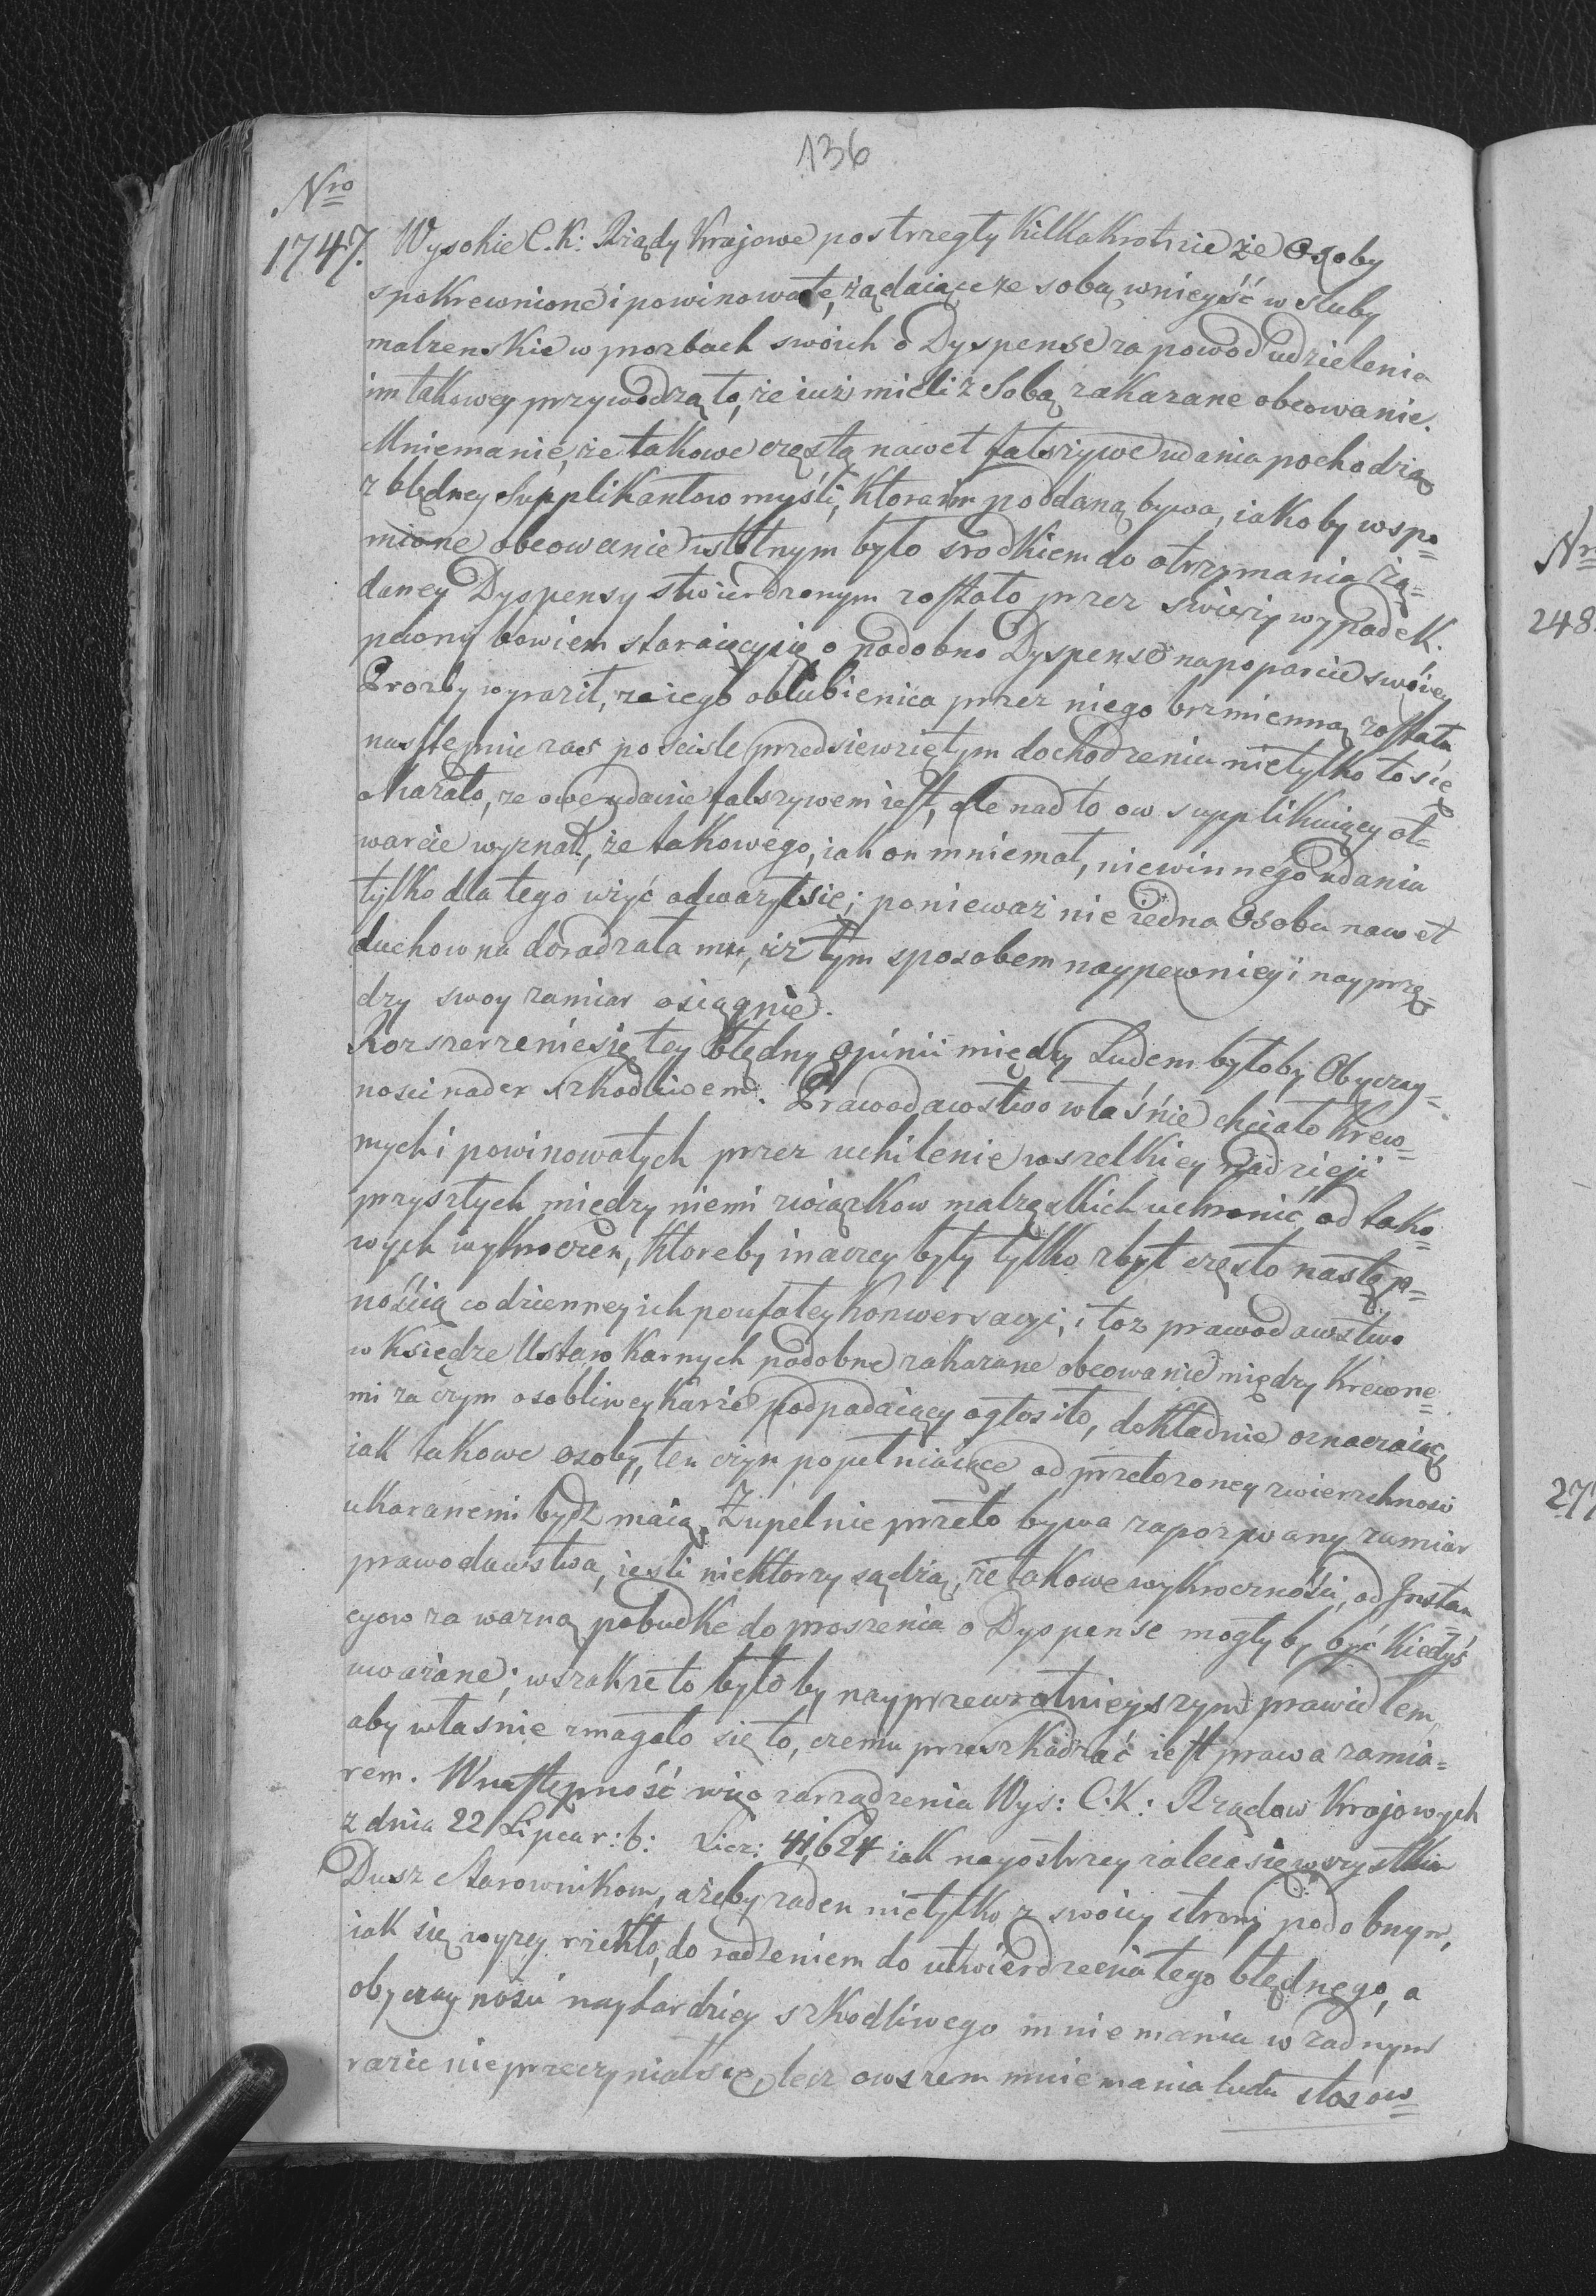 136
Nro
1747. Wysokie C.K: Rządy Krajowe postrzegły kilkakrotnie że Osoby
spokrewnione i powinowate, żądaiące ze sobą wnieyść w śluby
malzenskie w prozbach swoich o Dyspense za powod udzielenia
im takowey przywodzą to, że iuż mieli z Sobą zakazane obcowanie.
Mniemanie, że takowe częstą nawet fałszywe udania pochodzią
z błędney Supplikantow myśli, ktora im poddaną bywa, iakoby wspo=
mione obcowanie istotnym było srodkiem do otrzymania żą=
daney Dyspensy stwierdzonym zostało przez swieży wypadek.
pewny bowiem staraiącysię o podobno Dyspense na poparcie swoiey
Prozby wyraził, ze iego oblubienica przez niego brzmienną została
następnie zas po scisle przedsiewziętym dochodzeniu nietylko to się
okazało, ze owe udanie fałszywem iest, ale nad to ow supplikuiący ot=
warcie wyznał, że takowego, iak on mniemał, niewinnego udania
tylko dla tego użyć odwazył się; ponieważ nie iedna Osoba nawet
duchowna doradzała mu, iż tym sposobem naypewniey i nayprę=
dzy swoy zamiar osiągnie.
Rozszerzenie się tey błędny Opinii między Ludem byłoby Obyczay=
nosci nader szkodliwem. Prawodawstwo właśnie chciało krew=
nych i powinowatych przez uchilenie wszelkiey nadzieji
przyszłych między niemi związkow malżęskich uchronić od tako=
wych wykroczen, ktoreby inaczey były tylko zbyt często następ=
nością codzienney ich poufałey konwersacyi, i toz prawodawstwo
w Księdze Ustaw Karnych podobne zakazane obcowanie między krewne=
mi za czym osobliwey karze podpadaiący ogłosiło, dokładnie oznaczaiąc
iak takowe osoby, ten czyn popełniaiące od przełozoney zwierzchnosci
ukaranemi bydź maią. Zupelnie przeto bywa zapoznany zamiar
prawodawstwa, iesli niektorzy sądzą, że takowe wykroczności, od Instan=
cyow za wazną pobudke do proszenia o Dyspense mogłyby być kiedyś
uważane; wszakże to byłoby nayprzewrotnieyszym prawidłem,
aby właśnie zmagało się to, czemu przeszkadzać iest prawa zamia=
rem. Wnastępność więc zarządzenia Wys: C:K: Rządow Krajowych
z dnia 22 Lipca r: b: Licz: 41,624 iak nayostrzey zaleca się wszystkim
Dusz Starownikom, ażeby zaden nietylko z swoiey strony podobnym,
iak się wyzey rzekło, do radzeniem do utwierdzenia tego błędnego, a
obyczaynosci naybardziey szkodliwego mniemania w zadnym
razie nieprzeczyniał się, lecz owszem mniemania ludu stosow=
Nr
248
277